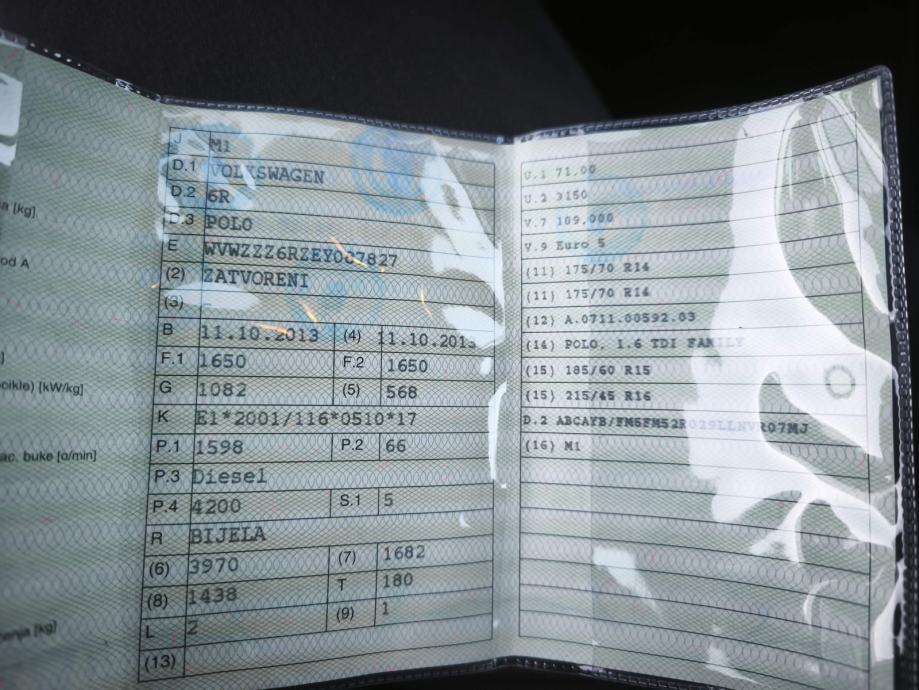 a [kg]
od A
]
ocikle) [kW/kg]
ac. buke [o/min]
[kg]
J M1
D.1 VOLKSWAGEN
D.2 6R
D.3 POLO
E
(2) ZATVORENI
(3)
B 11.10.2013 (4) 11.10.2013
F.1 1650 F.2 1650
G 1082 (5) 568
K E1*2001/116*0510*17
P.1 1598 P.2 66
P.3 Diesel
P.4 4200 S.1 5
R BIJELA
(6) 3970 (7) 1682
(8) 1438 T 180
L 2 (9) 1
(13)
U.1 71.00
U.2 3150
V.7 109.000
V.9 Euro 5
(11) 175/70 R14
(11) 175/70 R14
(12) A.0711.00592.03
(14) POLO, 1.6 TDI FAMILY
(15) 185/60 R15
(15) 215/45 R16
D.2
(16) M1